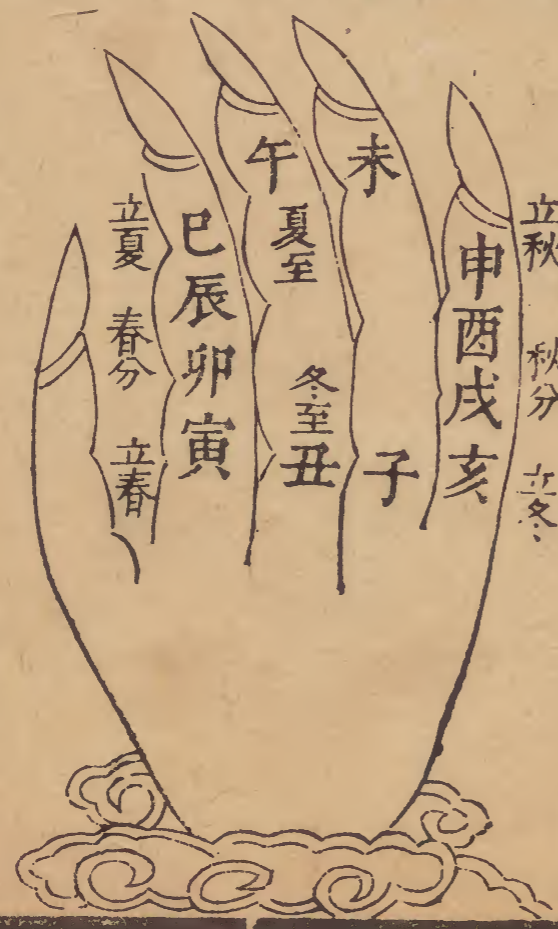 立秋 秋分 立冬
申酉戌亥
未 子
午 夏至 冬至 丑
巳辰卯寅
立夏 春分 立春